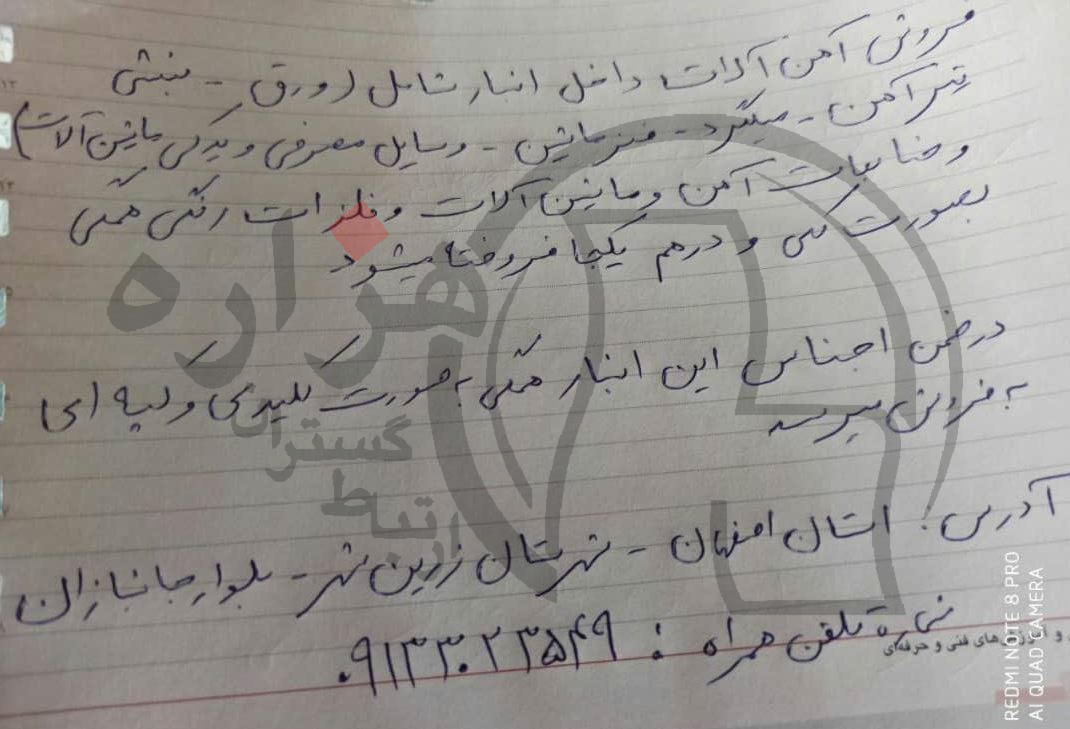 فروش آهن آلات داخل انبار شامل (ورق - نبشی
تیرآهن - میلگرد - فنر ماشین - وسایل مصرفی و یدکی ماشین آلات)
و ضایعات آهن و ماشین آلات و فلزات رنگی همگی
بصورت کلی و درهم یکجا فروخته میشود
در ضمن اجناس این انبار همگی به صورت کلیدی و کپه ای
به فروش میرسد
آدرس: استان اصفهان - شهرستان زرین شهر - بلوار جانبازان
شماره تلفن همراه : ۰۹۱۳۳۰۲۳۵۴۹
هزاره
گستران
ارتباط
های فنی و حرفه‌ای
REDMI NOTE 8 PRO
AI QUAD CAMERA